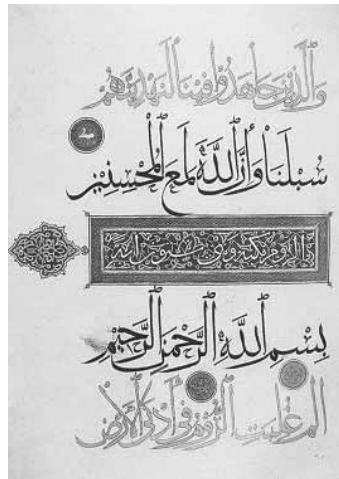 وَالَّذِينَ جَاهَدُوا فِينَا لَنَهْدِيَنَّهُمْ
سُبُلَنَا وَإِنَّ اللَّهَ لَمَعَ الْمُحْسِنِينَ
الروم مكية وهي ستون اية
بِسْمِ اللَّهِ الرَّحْمَنِ الرَّحِيمِ
الم غُلِبَتِ الرُّومُ فِي أَدْنَى الْأَرْضِ